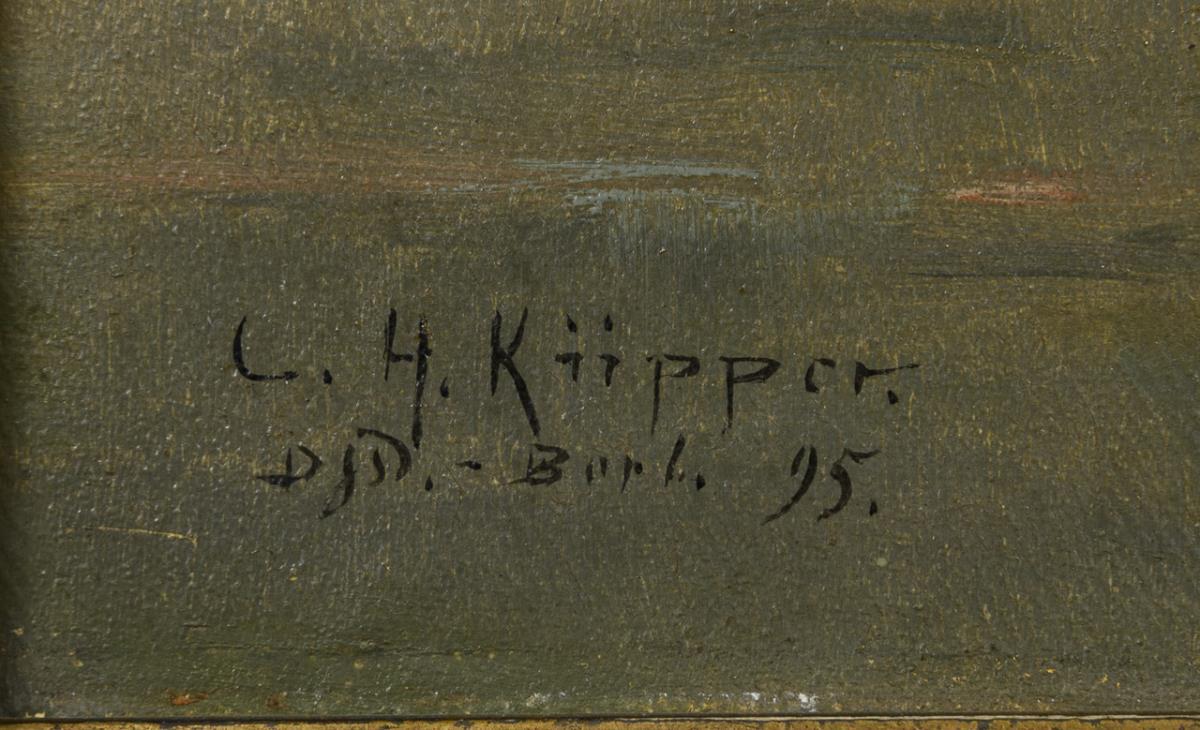 C. H. Küpper.
Dſſ.- Berl. 95.